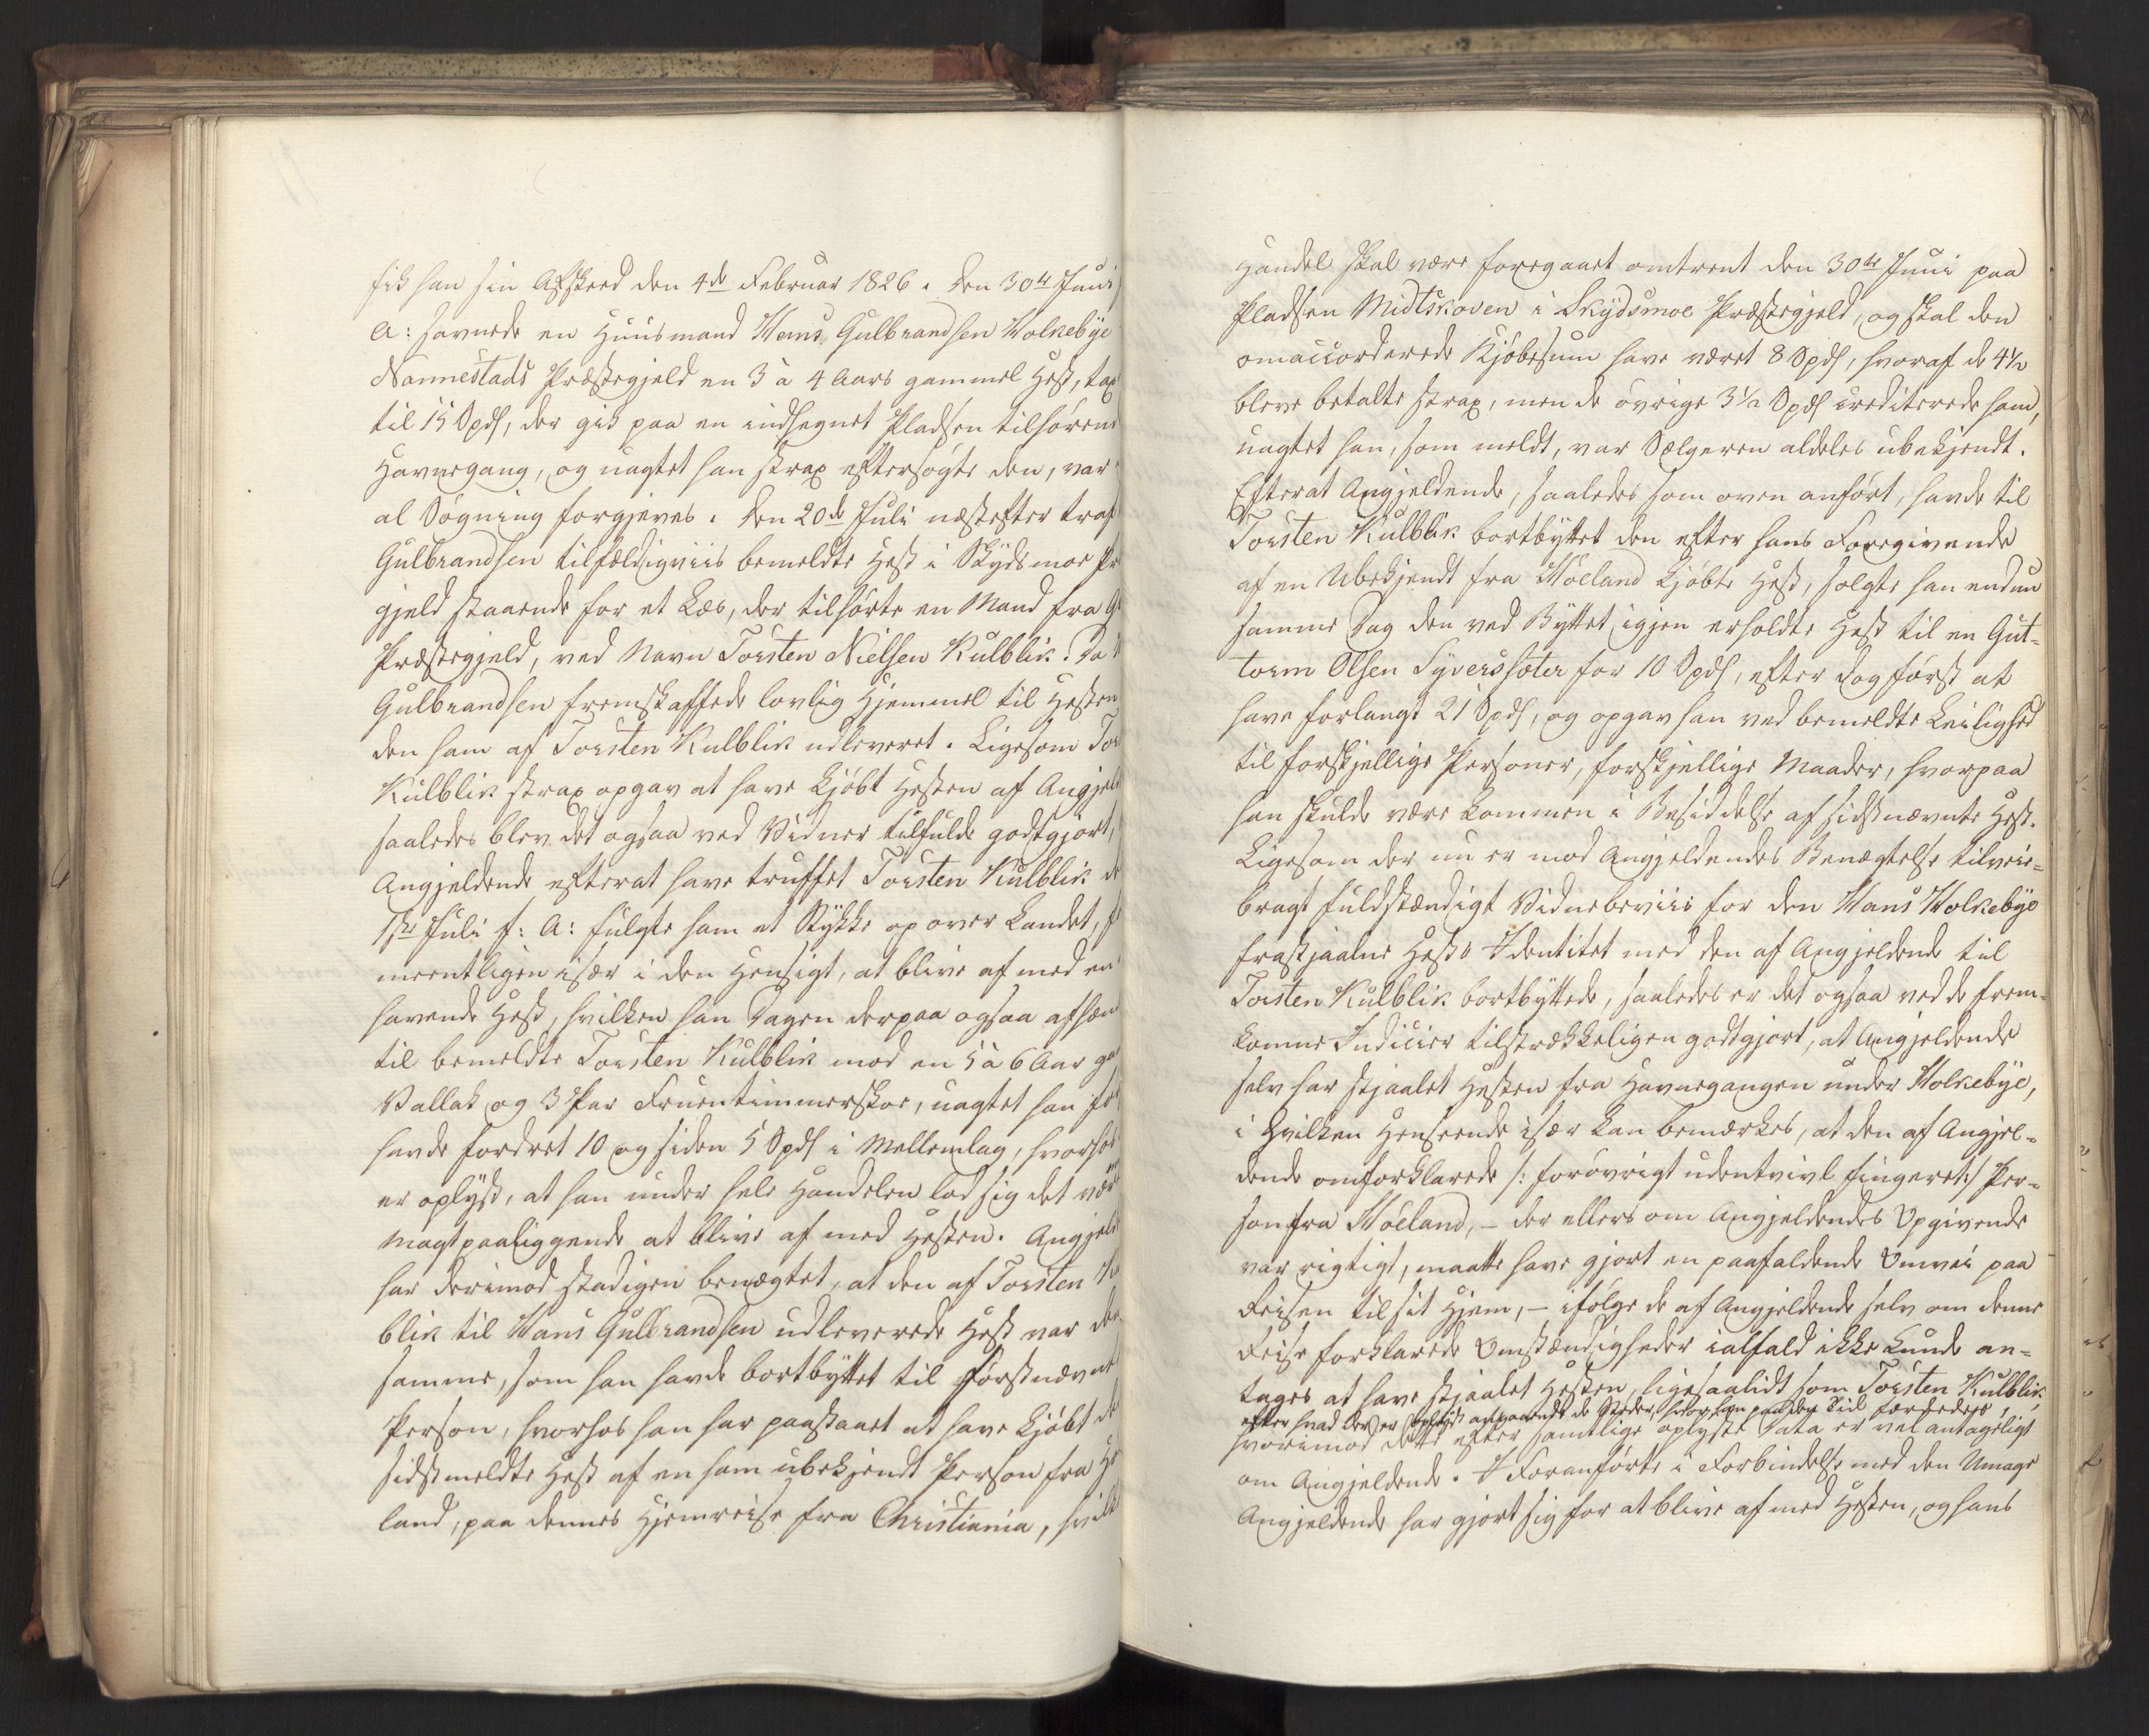 fik han sin Afskeed den 4de Februar 1826. Den 30te Juni
A: savnede en Huusmand Hans Gulbrandsen Holkebye
Nannestads Præstegjeld en 3 à 4 Aars gammel Hest, tax
til 15 Spd, der gik paa en indhegnet Pladsen tilhørend
Havnegang, og uagtet han strax eftersøgte den, var
al Søgning forgjeves. Den 20de Juli næstefter traf
Gulbrandsen tilfældigviis bemeldte Hest i Skydsmoe Pr
gjeld staaende for et Læs, der tilhørte en Mand fra G
Præstegjeld, ved Navn Torsten Nielsen Kulblik. Da
Gulbrandsen fremskaffede lovlig Hjemmel til Hesten
den ham af Torsten Kulblik udleveret. Ligesom Tor
Kulblik strax opgav at have kjøbt Hesten af Angjeld
saaledes blev det ogsaa ved Vidner tilfulde godtgjort,
Angjeldende efterat have truffet Torsten Kulblik d
1ste Juli f: A: fulgte ham et Stykke op over Landet, f
meentligen især i den Hensigt, at blive af med en
havende Hest, hvilken han Dagen derpaa ogsaa afhæn
til bemeldte Torsten Kulblik mod en 5 à 6 Aar ga
Vallak og 3 Par Fruentimmerskoe, uagtet han før
havde fordret 10 og siden 5 Spd i Mellemlag, hvorhos
er oplyst, at han under hele Handelen lod sig det være
magtpaaliggende at blive af med Hesten. Angjeld
har derimod stadigen benægtet, at den af Torsten Kul
blik til Hans Gulbrandsen udleverede Hest var den
samme, som han havde bortbyttet til førstnævnte
Person, hvorhos han har paastaaet at have kjøbt de
sidstmeldte Hest af en ham ubekjendt Person fra Hø
land, paa dennes Hjemreise fra Christiania, hvilk
Handel skal være foregaaet omtrent den 30te Juni paa
Pladsen Midtskoven i Skydsmoe Præstegjeld, og skal den
omaccorderede Kjøbesum have været 8 Spd, hvoraf de 4½
bleve betalte strax, men de øvrige 3½ Spd crediterede ham,
uagtet han, som meldt, var Sælgeren aldeles ubekjendt.
Efterat Angjeldende, saaledes som oven anført, havde til
Torsten Kulblik bortbyttet den efter hans Foregivende
af en Ubekjendt fra Høeland kjøbte Hest, solgte han endnu
samme Dag den ved Byttet igjen erholdte Hest til en Gut-
torm Olsen Syverssæter for 10 Spd, efter dog først at
have forlangt 21 Spd, og opgav han ved bemeldte Leilighed
til forskjellige Personer, forskjellige Maader, hvorpaa
han skulde være kommen i Besiddelse af sidstnævnte Hest.
Ligesom der nu er mod Angjeldendes Benægtelse tilveie-
bragt fuldstændigt Vidnebeviis for den Hans Holkebye
frastjaalne Hests Identitet med den af Angjeldende til
Torsten Kulblik bortbyttede, saaledes er det ogsaa ved de frem-
komne Indicier tilstrækkeligen godtgjort, at Angjeldende
selv har stjaalet Hesten fra Havnegangen under Holkebye,
i hvilken Henseende især kan bemærkes, at den af Angjel-
dende omforklarede /: forøvrigt udentvivl fingeret :/ Per-
son fra Høeland, – der ellers om Angjeldendes Opgivende
var rigtigt, maatte have gjort en paafaldende Omvei paa
Reisen til sit Hjem, – ifølge de af Angjeldende selv om denne
Reise forklarede Omstændigheder ialfald ikke kunde an-
tages at have stjaalet Hesten, ligesaalidt som Torsten Kulblik,
efter hvad der er oplyst angaaende de Steder, hvor han paa den Tid færdedes,
hvorimod dette efter samtlige oplyste Data er vel antageligt
om Angjeldende. I Foranførte i Forbindelse med den Umage
Angjeldende har gjort sig for at blive af med Hesten, og hans